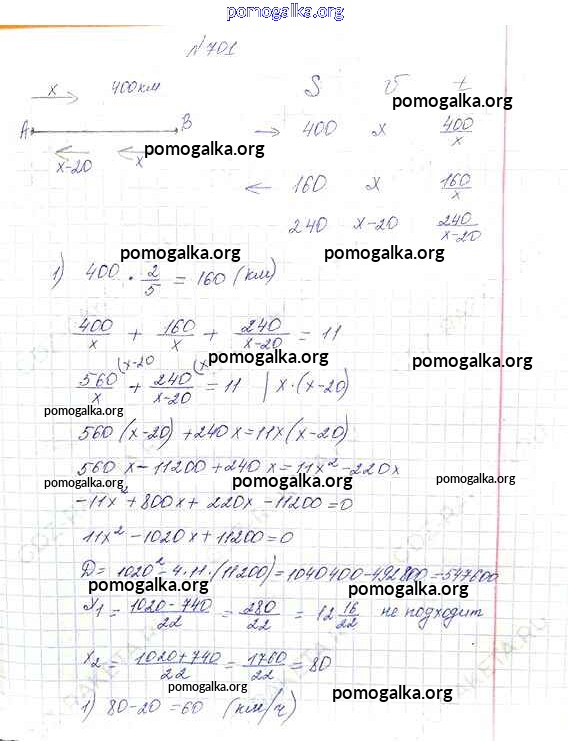 pomogalka.org
№701
x 400км S v t
pomogalka.org
A B → 400 x 400/x
x-20 x
pomogalka.org
← 160 x 160/x
240 x-20 240/x-20
pomogalka.org pomogalka.org
1) 400 · 2/5 = 160 (км)
400/x + 160/x + 240/x-20 = 11
pomogalka.org pomogalka.org
560/x (x-20 + 240/x-20 (x = 11 | x·(x-20)
pomogalka.org
560 (x-20) + 240x = 11x(x-20)
560x - 11200 + 240x = 11x² - 220x
pomogalka.org pomogalka.org pomogalka.org
-11x² + 800x + 220x - 11200 = 0
11x² - 1020x + 11200 = 0
Д = 1020² - 4·11·(11200) = 1040400 - 492800 = 547600
pomogalka.org pomogalka.org
x1 = 1020-740/22 = 280/22 = 12 16/22 не подходит
x2 = 1020+740/22 = 1760/22 = 80
pomogalka.org pomogalka.org
1) 80-20 = 60 (км/ч)